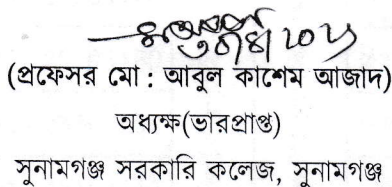 (প্রফেসর মো : আবুল কাশেম আজাদ)
অধ্যক্ষ(ভারপ্রাপ্ত)
সুনামগঞ্জ সরকারি কলেজ, সুনামগঞ্জ